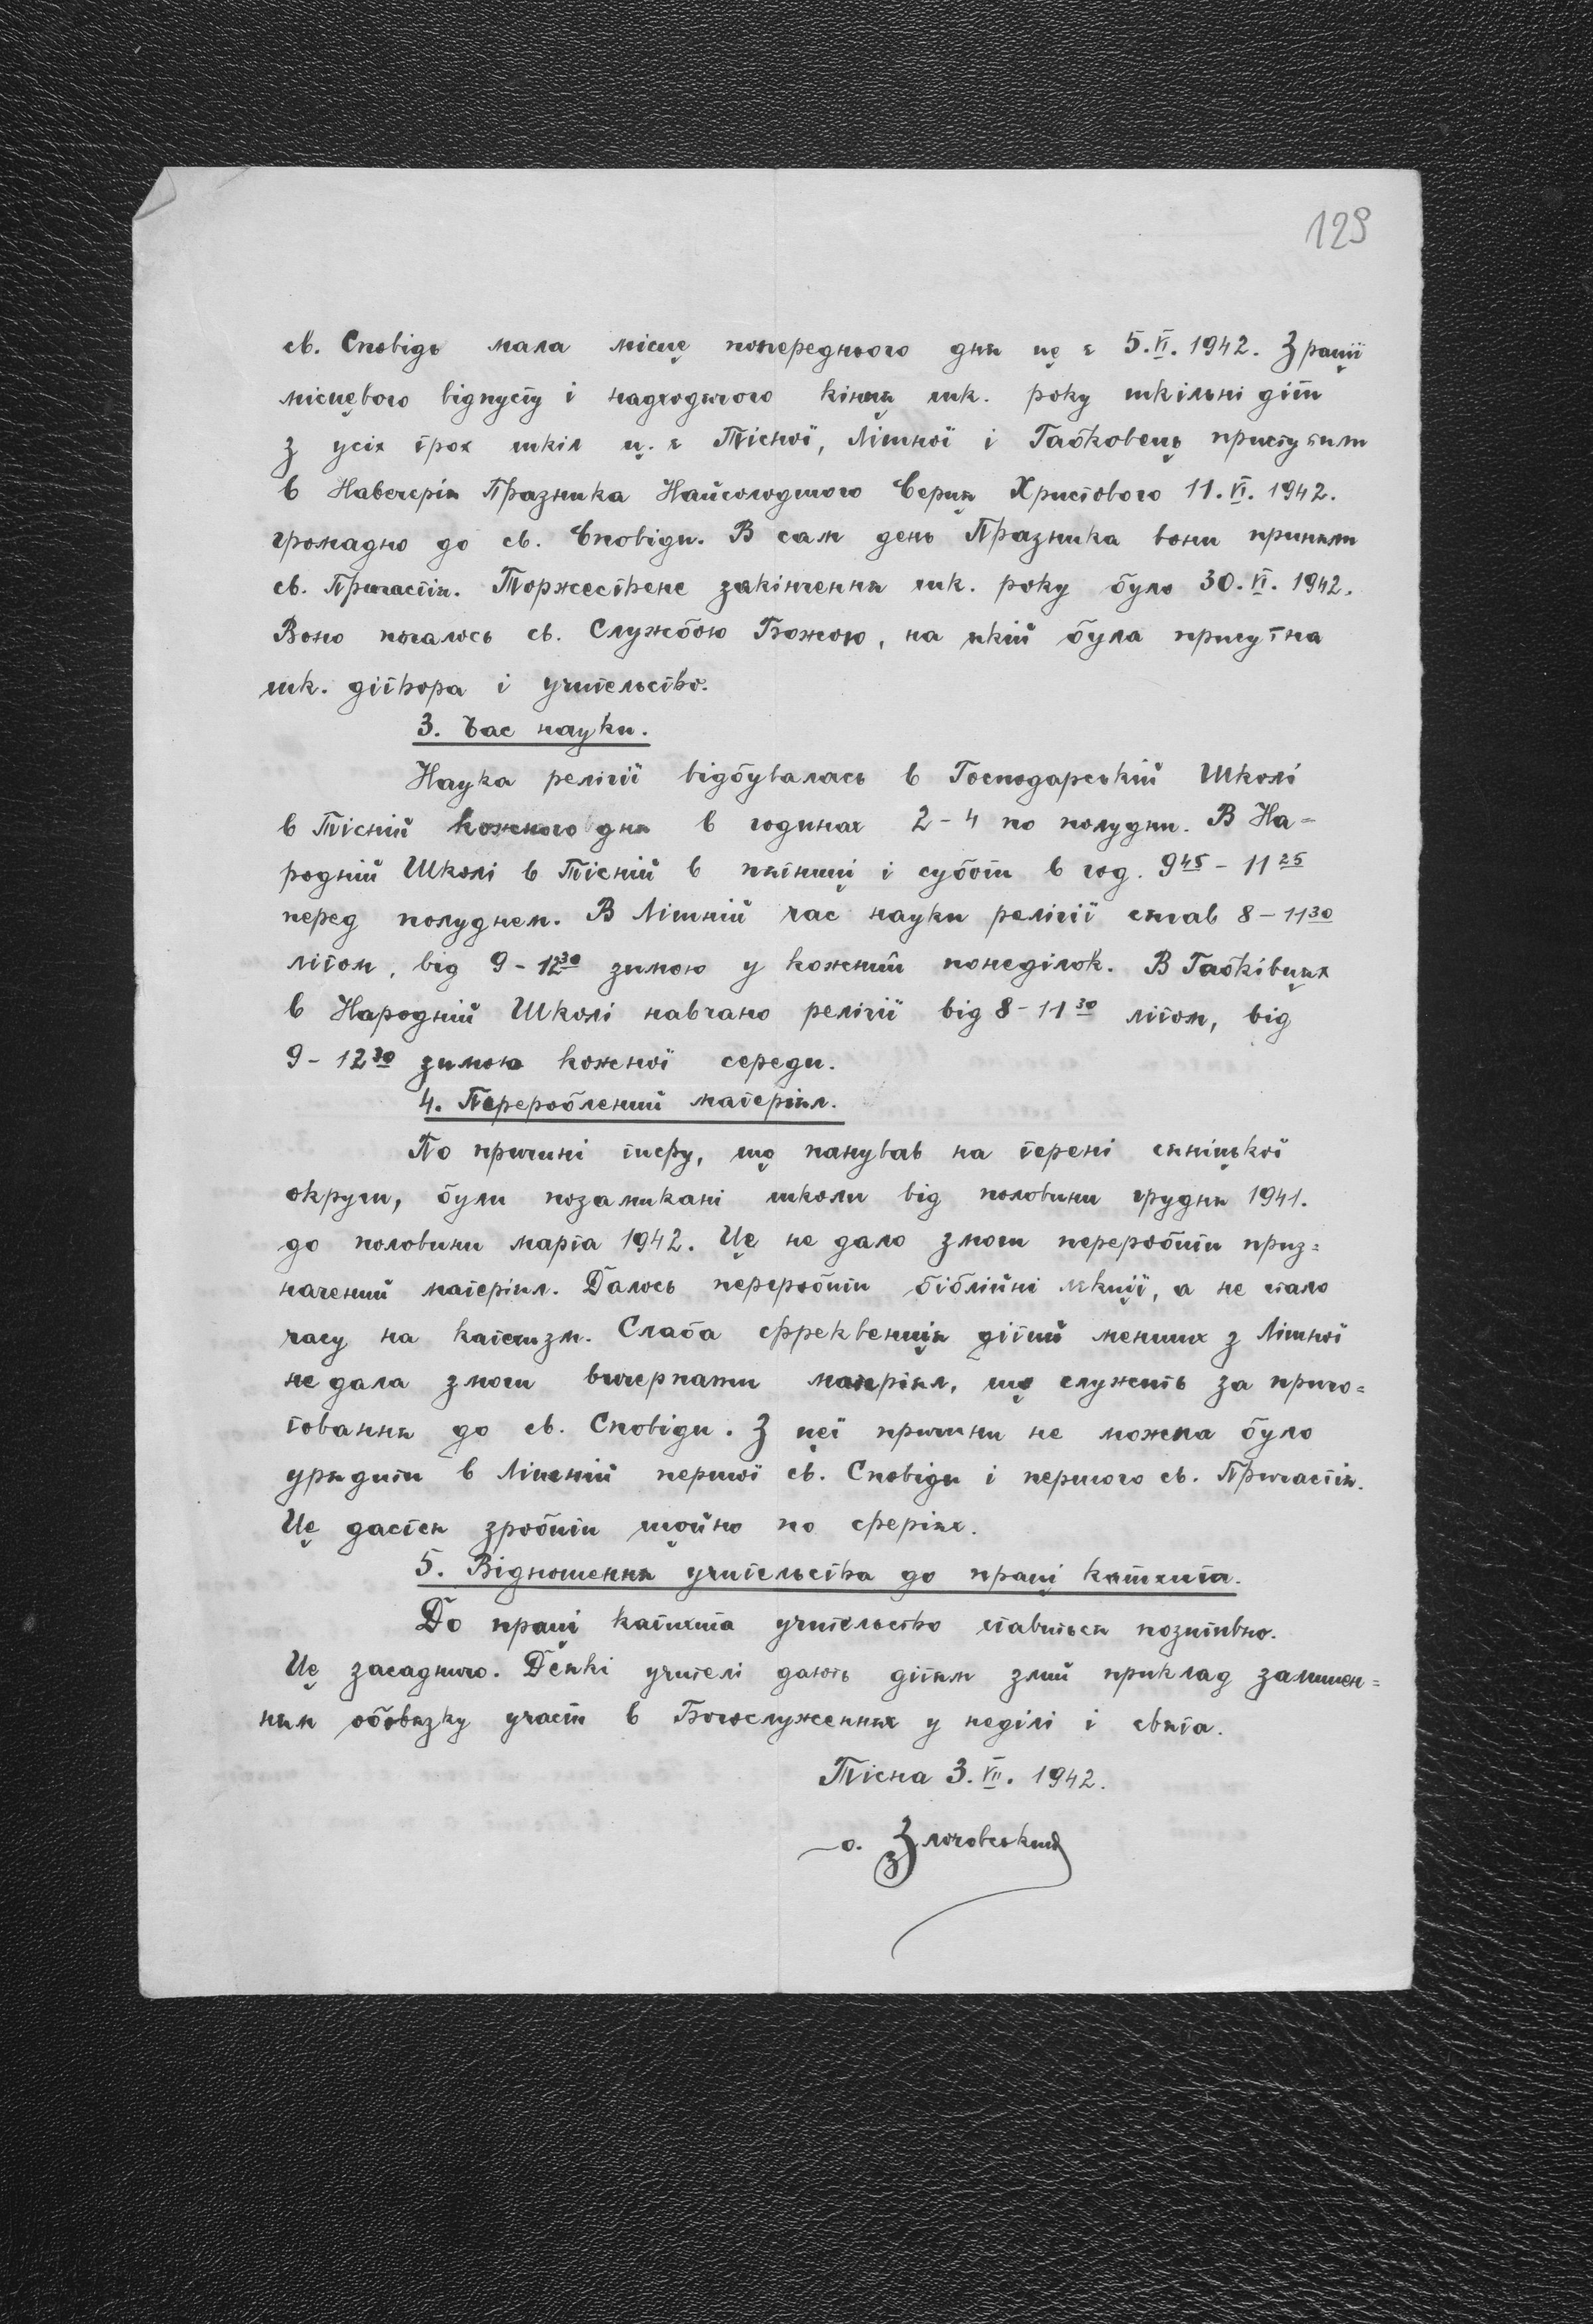 129
св. Сповідь мала місце попереднього дня це є 5.VI.1942. З рації
місцевого відпусту і надходячого кінця шк. року шкільні діти
з усіх трох шкіл ц. є Тісної, Лішної і Габковець приступили
в Навечеріє Празника Найсолодшого Серця Христового 11.VI.1942.
громадно до св. Сповіди. В сам день Празника вони приняли
св. Причастія. Торжествене закінчення шк. року було 30.VI.1942.
Воно почалось св. Службою Божою, на якій була присутна
шк. дітвора і учительство.
3. Час науки.
Наука релігії відбувалась в Господарській Школі
в Тісній кожного дня в годинах 2-4 по полудни. В На=
родній Школі в Тісній в пятниці і суботи в год. 9 45 - 11 25
перед полуднем. В Лішній час науки релігії став 8 - 11 30
літом, від 9 - 12 30 зимою у кожний понеділок. В Габківцях
в Народній Школі навчано релігії від 8 - 11 30 літом, від
9 - 12 30 зимою кожної середи.
4. Перероблений матеріял.
По причині тифу, що панував на терені сяніцької
округи, були позамикані школи від половини грудня 1941.
до половини марта 1942. Це не дало змоги переробити приз=
начений матеріял. Далось переробити біблійні лекції, а не стало
часу на катехизм. Слаба фреквенція дітий менших з Лішної
не дала змоги вичерпати матеріял, що служить за приго=
товання до св. Сповіди. З цеї причини не можна було
урядити в Лішній першої св. Сповіди і першого св. Причастія.
Це дасться зробити щойно по феріях.
5. Відношення учительства до праці катехита.
До праці катихита учительство ставиться позитивно.
Це засадничо. Деякі учителі дають дітям злий приклад залишен=
ням обовязку участи в Богослуженнях у неділі і свята.
Тісна 3.VII.1942.
о. Злочовский